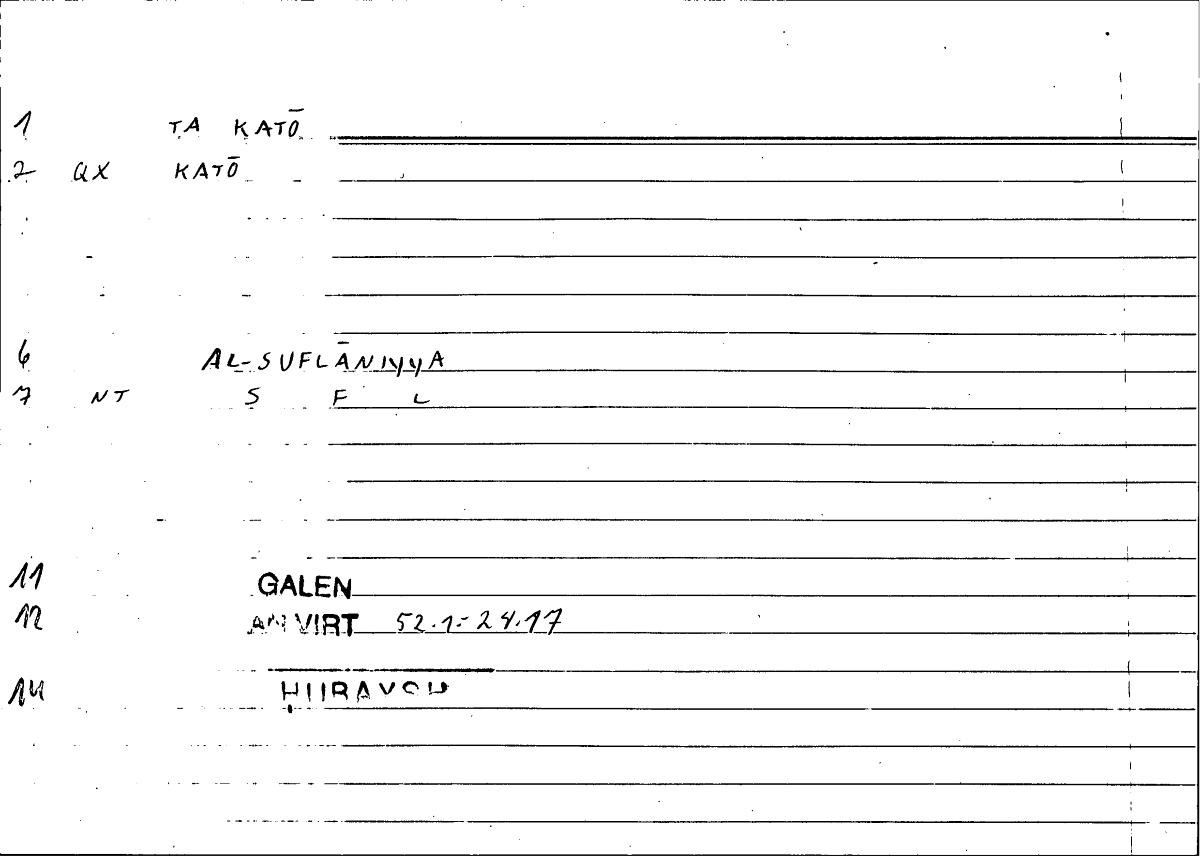 1 TA KATŌ
2 QX KATŌ
6 AL-SUFLĀNIYYA
7 NT S F L
11 GALEN
12 AN VIRT 52.1-24.17
14